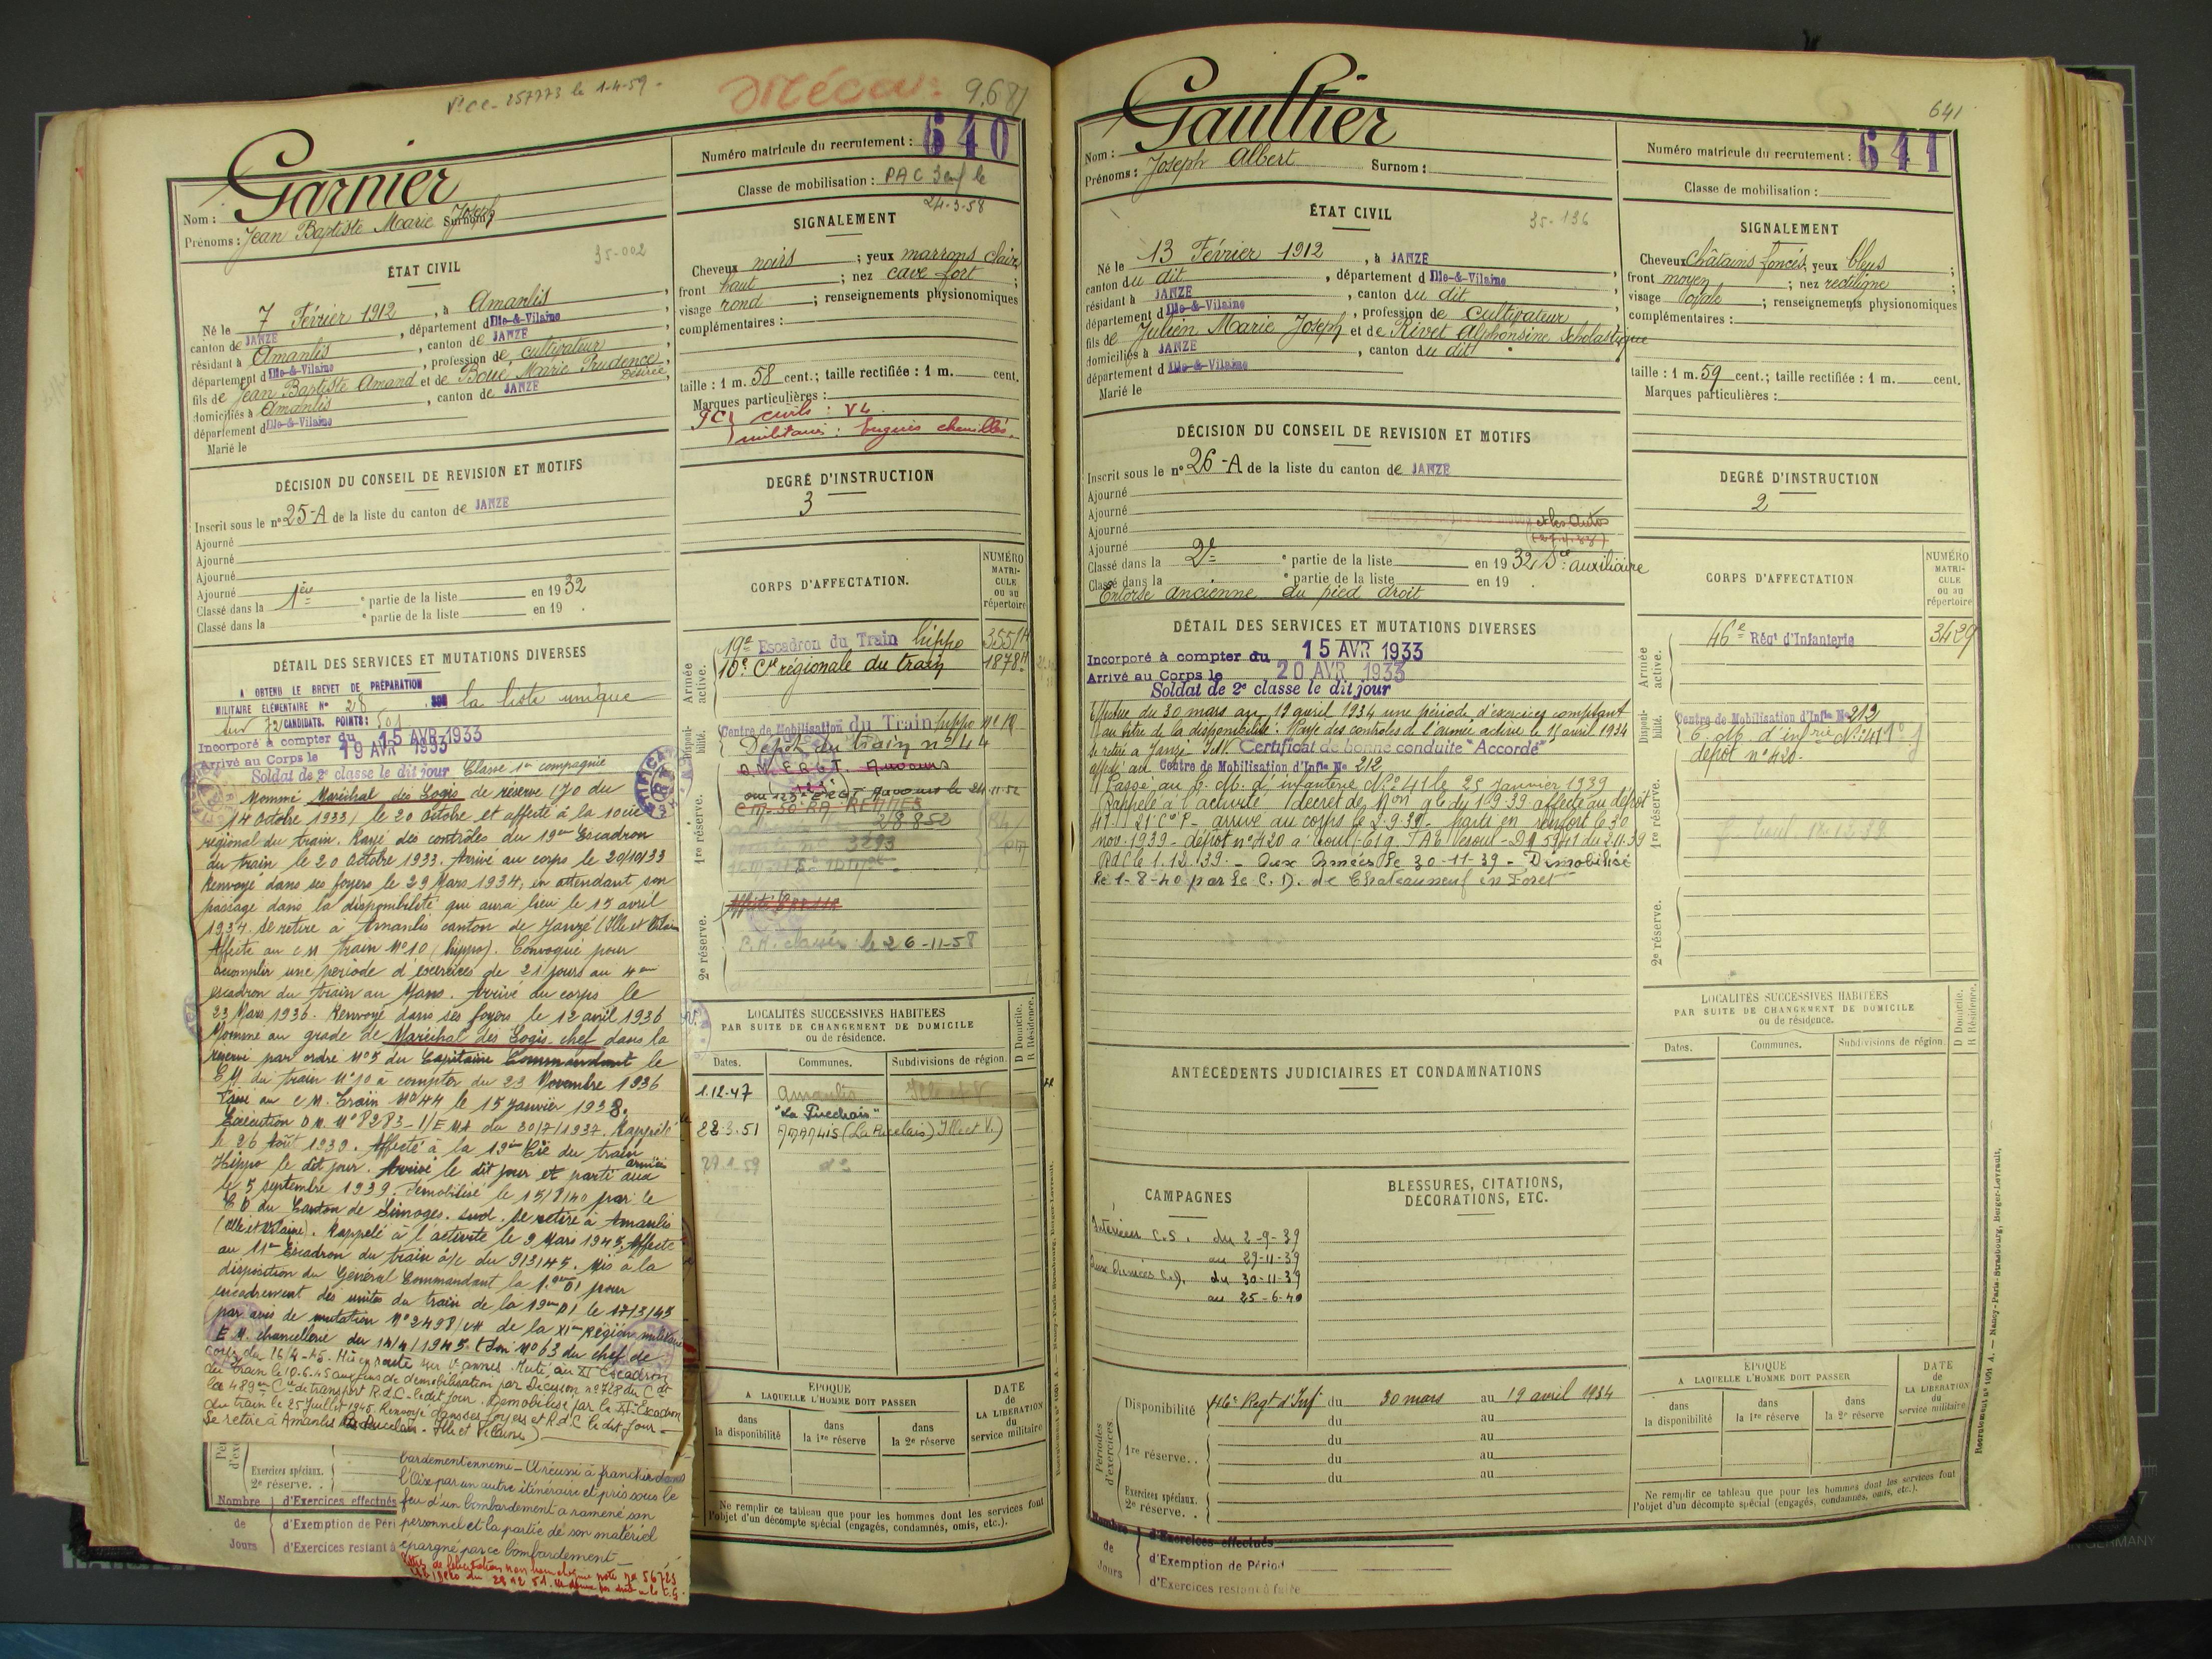 V. CC - 257773 le 1-4-59 -
Mécan: 9,681
Garnier
Nom :
Prénoms : Jean Baptiste Marie Joseph Surnom :
35-002
ÉTAT CIVIL
Né le 7 Février 1912, à Amanlis,
canton de JANZE, département d Ille-&-Vilaine,
résidant à Amanlis, canton de JANZE,
département d Ille-&-Vilaine, profession de cultivateur,
fils de Jean Baptiste Amand et de Boué Marie Prudence Désirée,
domiciliés à Amanlis, canton de JANZE,
département d Ille-&-Vilaine
Marié le
DÉCISION DU CONSEIL DE REVISION ET MOTIFS
Inscrit sous le n° 25-A de la liste du canton de JANZE
Ajourné
Ajourné
Ajourné
Ajourné
Classé dans la 1ère e partie de la liste en 1932
Classé dans la e partie de la liste en 19 .
DÉTAIL DES SERVICES ET MUTATIONS DIVERSES
A OBTENU LE BREVET DE PRÉPARATION
MILITAIRE ÉLÉMENTAIRE N° 28 sur la liste unique
sur 72 CANDIDATS. POINTS : 501
Incorporé à compter du 15 AVR 1933
Arrivé au Corps le 19 AVR 1933
Soldat de 2e classe le dit jour Classe 1re compagnie
Nommé Maréchal des Logis de réserve (JO du
14 Octobre 1933) le 20 Octobre et affecté à la 10e Cie
régional du train. Rayé des contrôles du 19ème Escadron
du train le 20 Octobre 1933. Arrivé au corps le 20/10/33
Renvoyé dans ses foyers le 29 Mars 1934, en attendant son
passage dans la disponibilité qui aura lieu le 15 avril
1934. Se retire à Amanlis canton de Janzé (Ille et Vilaine
Affecté au C M Train N°10 (hippo). Convoqué pour
accomplir une période d'exercices de 21 jours au 4ème
escadron du train au Mans. Arrivé au corps le
23 Mars 1936. Renvoyé dans ses foyers le 12 avril 1936
Nommé au grade de Maréchal des Logis-chef dans la
réserve par ordre N°5 du Capitaine Commandant le
C M du train N°10 à compter du 23 Novembre 1936
Passé au C M. Train N°44 le 15 Janvier 1938.
Exécution D M. N°8283-1/E MA du 30/7/1937. Rappelé
le 26 Août 1939. Affecté à la 19ème Cie du train
Hippo le dit jour. Arrivé le dit jour et parti aux armées
le 5 septembre 1939. Démobilisé le 15/8/40 par le
C D du Canton de Limoges. sud. Se retire à Amanlis
(Ille et Vilaine). Rappelé à l'activité le 9 Mars 1945. Affecté
au 11ème Escadron du train à/c du 9/3/45. Mis à la
disposition du Général Commandant la 19ème DI pour
encadrement des unités du train de la 19ème DI le 17/3/45
par avis de mutation N°2498/CH de la XIème Région militaire
E M. chancellerie du 14/4/1945. (Dn N°63 du chef de
corps du 16/4-45. Mis en route sur Vannes. Muté au XIe Escadron
du train le 10.6.45 aux fins de démobilisation par Décision n°728 du Cdt
la 489e Cie de transport R.d.C. le dit jour. Démobilisé par le XIe Escadron
du train le 25 Juillet 1945. Renvoyé dans ses foyers et R.d.C le dit jour -
Se retire à Amanlis (La Pucelais - Ille et Vilaine)
Exercices spéciaux.
2e réserve. .
bardement ennemi - A réussi à franchir dans
l'Oise par un autre itinéraire et pris sous le
Nombre d'Exercices effectués feu d'un bombardement a ramené son
de d'Exemption de Péri personnel et la partie de son matériel
Jours d'Exercices restant à épargné par ce bombardement -
Numéro matricule du recrutement : 640
Classe de mobilisation : PAC 3 enf le
24-3-58
SIGNALEMENT
Cheveux noirs ; yeux marrons clairs
front haut ; nez cave fort ;
visage rond ; renseignements physionomiques
complémentaires :
taille : 1 m. 58 cent.; taille rectifiée : 1 m. cent.
Marques particulières :
PC civils : VL
militaires : Engins chenillés.
DEGRÉ D'INSTRUCTION
3
CORPS D'AFFECTATION.
NUMÉRO MATRICULE ou au répertoire
Armée active.
19e Escadron du Train hippo 3551H
10e Cie régionale du train 1878H
Disponibilité.
Centre de Mobilisation du Train hippo N°10
Dépôt du train n°44
1re réserve.
CM-50 RA-RENNES
2e réserve.
P.A. classée le 26-11-58
LOCALITÉS SUCCESSIVES HABITÉES
PAR SUITE DE CHANGEMENT DE DOMICILE
ou de résidence.
Dates. Communes. Subdivisions de région. D Domicile. R Résidence.
1.12.47 Amanlis Ille et V.
"La Pucelais"
22.3.51 AMANLIS (La Pucelais) Ille et V.)
ÉPOQUE
A LAQUELLE L'HOMME DOIT PASSER
dans la disponibilité
dans la 1re réserve
dans la 2e réserve
DATE DE LA LIBÉRATION du service militaire
Ne remplir ce tableau que pour les hommes dont les services font
l'objet d'un décompte spécial (engagés, condamnés, omis, etc.).
641
Gaultier
Nom :
Prénoms : Joseph Albert Surnom :
ÉTAT CIVIL
35-136
Né le 13 Février 1912, à JANZE,
canton du dit, département d Ille-&-Vilaine,
résidant à JANZE, canton du dit,
département d Ille-&-Vilaine, profession de cultivateur
fils de Julien Marie Joseph et de Rivet Alphonsine Scholastique
domiciliés à JANZE, canton du dit
département d Ille-&-Vilaine
Marié le
DÉCISION DU CONSEIL DE REVISION ET MOTIFS
Inscrit sous le n° 26-A de la liste du canton de JANZE
Ajourné
Ajourné
Ajourné
Ajourné
Classé dans la 2e e partie de la liste en 1932 Sce auxiliaire
Classé dans la e partie de la liste en 19 .
Entorse ancienne du pied droit
DÉTAIL DES SERVICES ET MUTATIONS DIVERSES
Incorporé à compter du 15 AVR 1933
Arrivé au Corps le 20 AVR 1933
Soldat de 2e classe le dit jour
Effectue du 30 mars au 19 avril 1934 une période d'exercices comptant
au titre de la disponibilité. Rayé des contrôles de l'armée active le 15 avril 1934
se retire à Janzé I&V. Certificat de bonne conduite "Accordé"
affecté au Centre de Mobilisation d'Infie N° 212
Passé au C. M. d'infanterie N° 41 le 25 Janvier 1939
Rappelé à l'activité (décret de Mon gle du 1-9-39 affecté au dépôt
41 21e Cie P - arrivé au corps le 2.9.39 - parti en renfort le 30
nov. 1939 - dépôt n°420 à Toul
RdC le 1.12.39 - Aux Armées le 30-11-39 - Démobilisé
le 1-8-40 par le C. D. de Chateauneuf en Foret
ANTÉCÉDENTS JUDICIAIRES ET CONDAMNATIONS
CAMPAGNES
Intérieur C.S. du 2-9-39
au 29-11-39
Aux Armées C.D. du 30-11-39
au 25-6-40
BLESSURES, CITATIONS, DÉCORATIONS, ETC.
Périodes d'exercices
Disponibilité 46e Regt d'Inf du 30 mars au 19 avril 1934
du au
1re réserve. . du au
du au
du au
Exercices spéciaux.
2e réserve. .
Nombre d'Exercices effectués
de d'Exemption de Périod
Jours d'Exercices restant à faire
Numéro matricule du recrutement : 641
Classe de mobilisation :
SIGNALEMENT
Cheveux châtains foncés, yeux bleus ;
front moyen ; nez rectiligne ;
visage ovale ; renseignements physionomiques
complémentaires :
taille : 1 m. 59 cent.; taille rectifiée : 1 m. cent.
Marques particulières :
DEGRÉ D'INSTRUCTION
2
CORPS D'AFFECTATION
NUMÉRO MATRICULE ou au répertoire
Armée active.
46e Régt d'Infanterie 3439
Disponibilité.
Centre de Mobilisation d'Infie N° 212
C. M. d'infrie N° 41
dépôt n°420.
1re réserve.
2e réserve.
LOCALITÉS SUCCESSIVES HABITÉES
PAR SUITE DE CHANGEMENT DE DOMICILE
ou de résidence.
Dates. Communes. Subdivisions de région. D Domicile. R Résidence.
ÉPOQUE
A LAQUELLE L'HOMME DOIT PASSER
dans la disponibilité
dans la 1re réserve
dans la 2e réserve
DATE DE LA LIBÉRATION du service militaire
Ne remplir ce tableau que pour les hommes dont les services font
l'objet d'un décompte spécial (engagés, condamnés, omis, etc.).
Recrutement N° 1091 A. — Nancy-Paris-Strasbourg, Berger-Levrault.